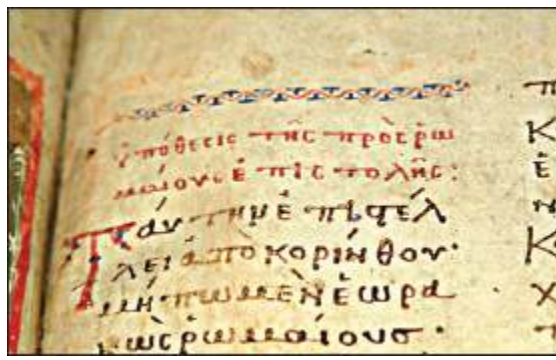 ὑπόθεσις τῆς πρὸς ῥω
μαίους ἐπιστολῆς:
Ταύτην ἐπιϛέλ
λει ἀπὸ κορίνθου·
μήπω μὲν ἑωρα
κὼς ῥωμαίους·